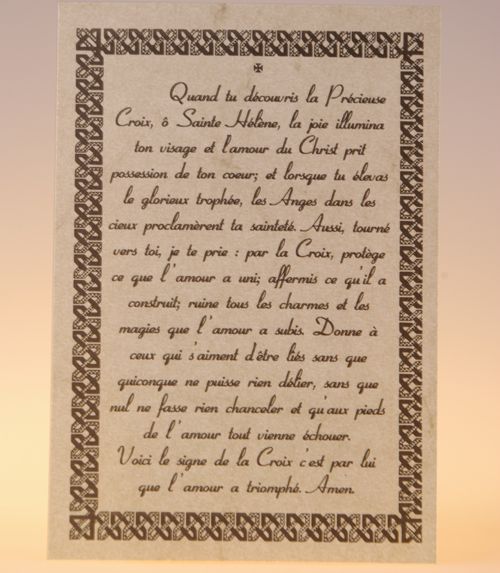 Quand tu découvris la Précieuse
Croix, ô Sainte Hélène, la joie illumina
ton visage et l'amour du Christ prit
possession de ton coeur; et lorsque tu élevas
le glorieux trophée, les Anges dans les
cieux proclamèrent ta sainteté. Aussi, tourné
vers toi, je te prie : par la Croix, protège
ce que l'amour a uni; affermis ce qu'il a
construit; ruine tous les charmes et les
magies que l'amour a subis. Donne à
ceux qui s'aiment d'être liés sans que
quiconque ne puisse rien délier, sans que
nul ne fasse rien chanceler et qu'aux pieds
de l'amour tout vienne échouer.
Voici le signe de la Croix c'est par lui
que l'amour a triomphé. Amen.